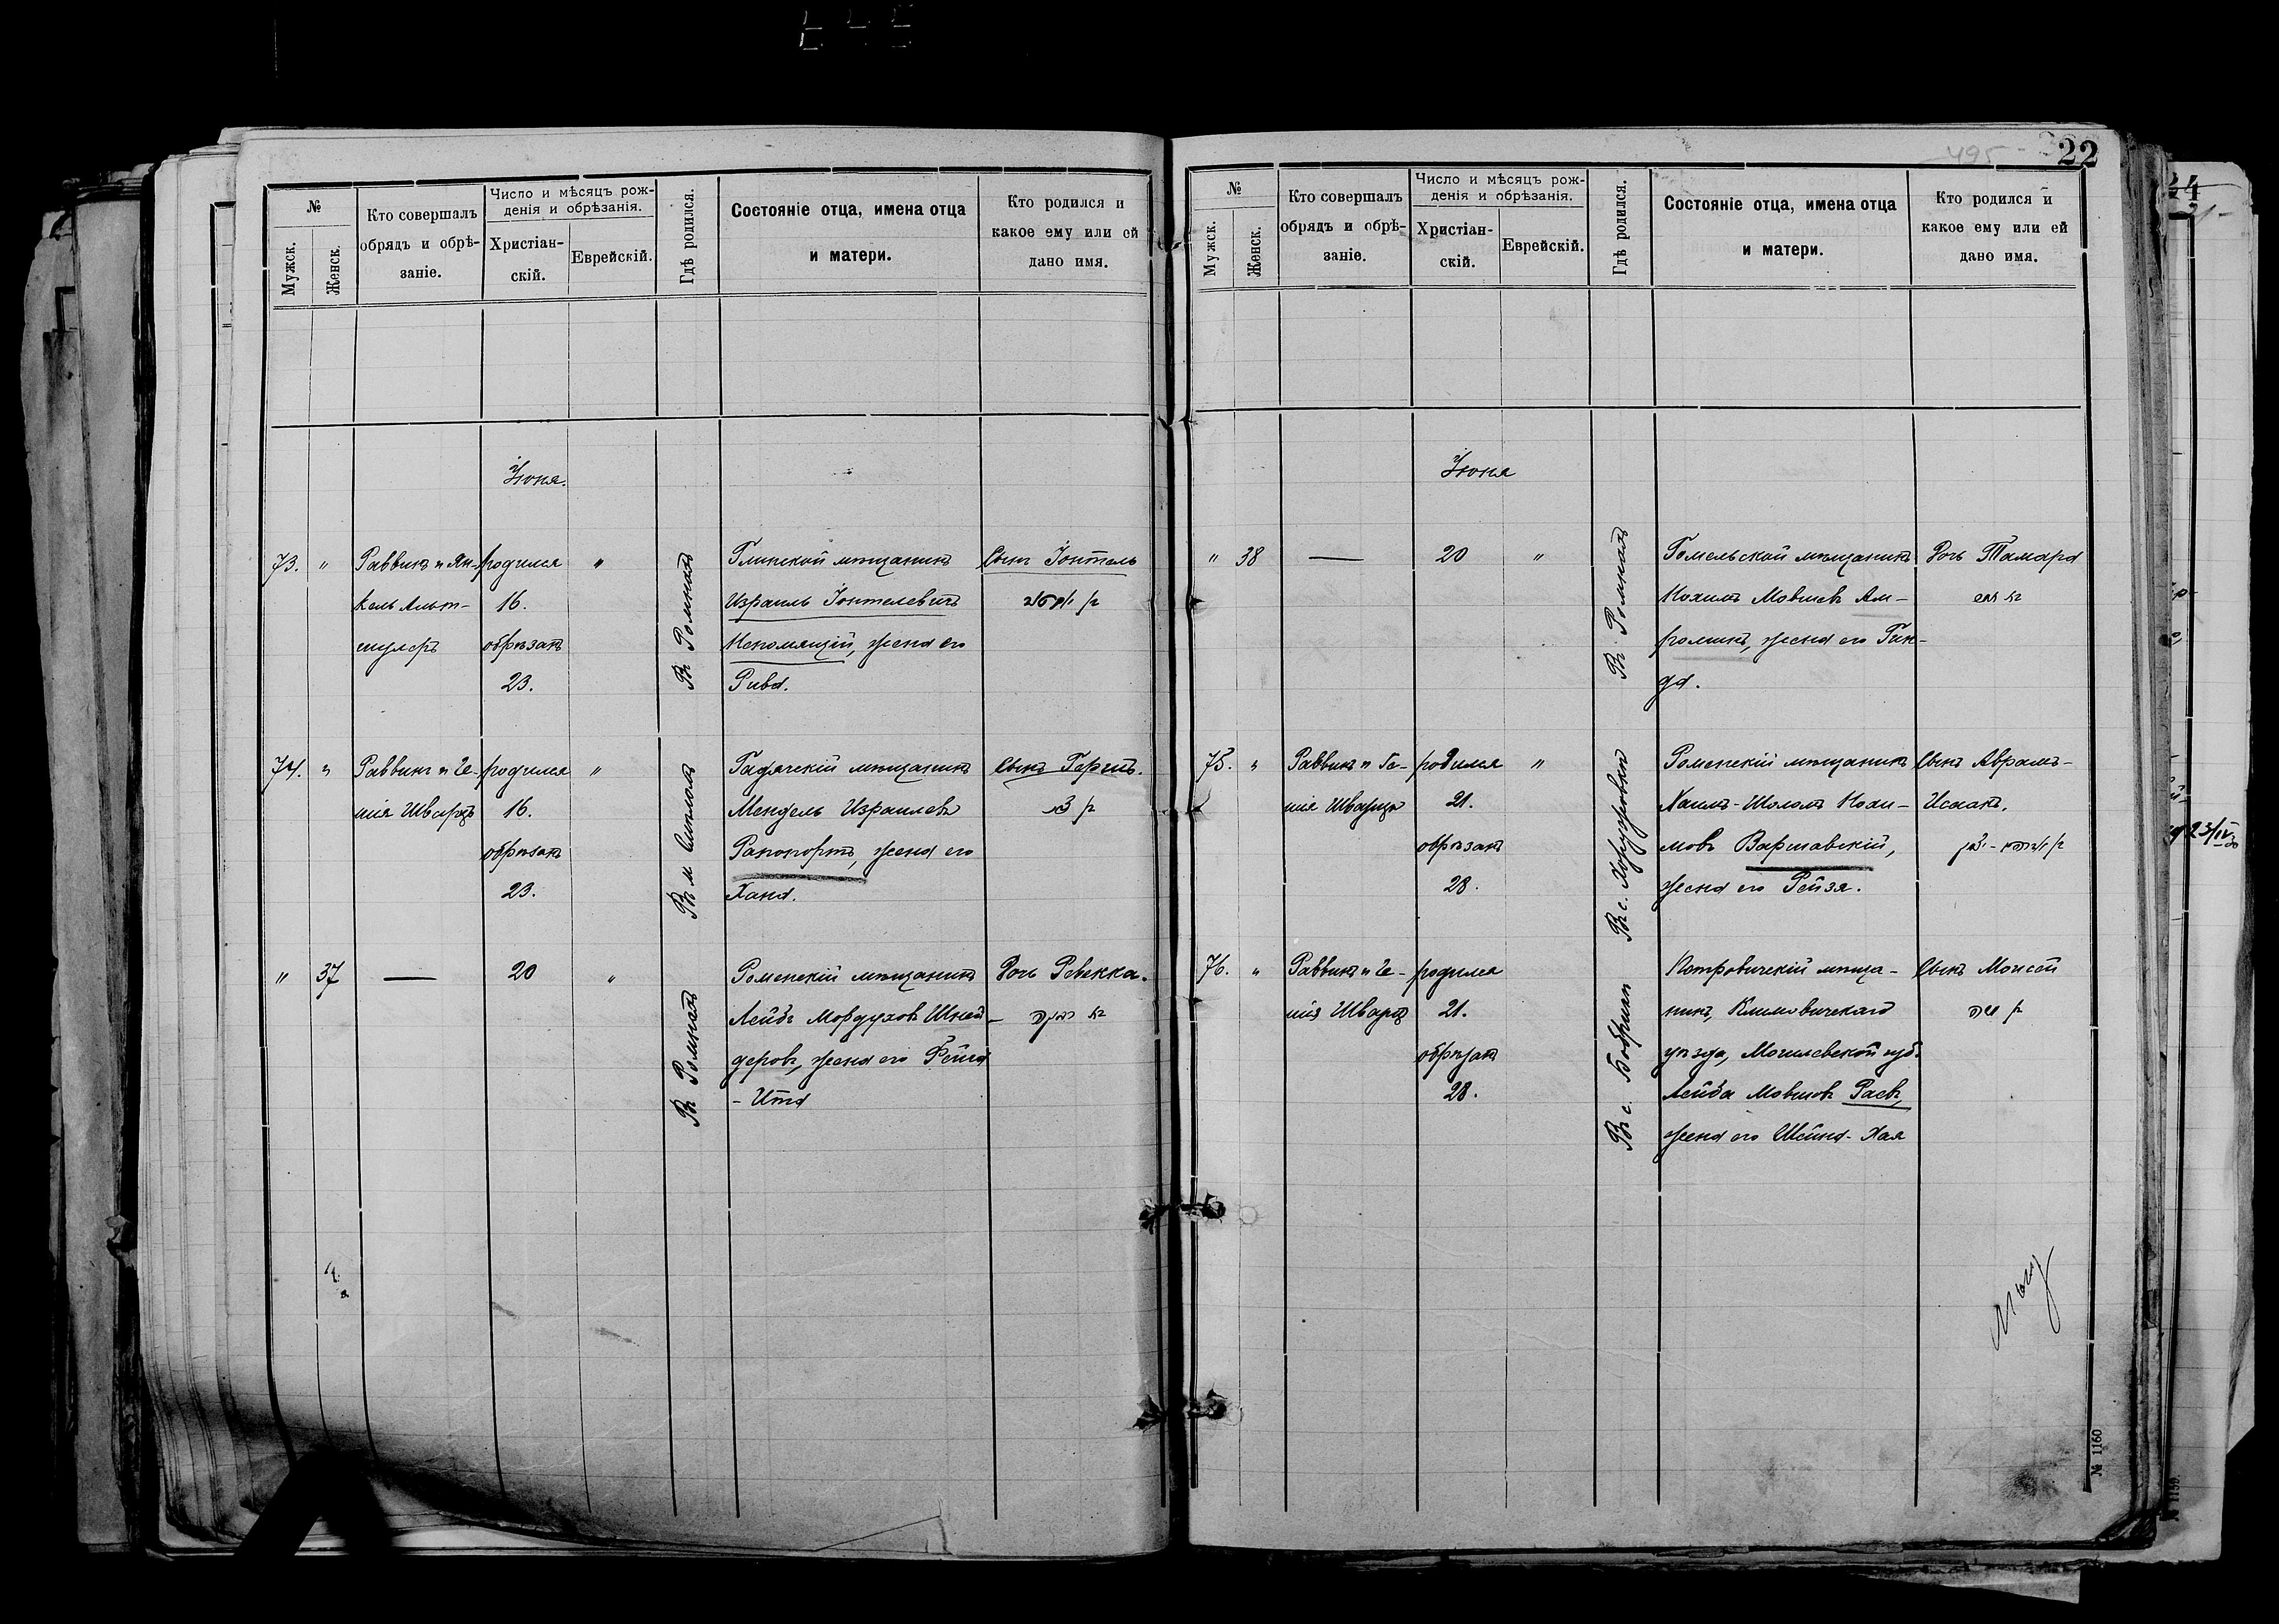 №
Мужск.
Женск.
Кто совершалъ
обрядъ и обрѣ-
заніе.
Число и мѣсяцъ рож-
денія и обрѣзанія.
Христіан-
скій.
Еврейскій.
Гдѣ родился.
Состояніе отца, имена отца
и матери.
Кто родился и
какое ему или ей
дано имя.
Іюня.
73.
"
Раввинъ и Ян-
кель Альт-
шулеръ
родился
16.
обрѣзанъ
23.
"
Въ Ромнахъ
Глинскій мѣщанинъ
Израиль Іонтелевичъ
Непомящій, жена его
Рива.
Сынъ Іонтель
74.
"
Раввинъ и Ге-
шія Шварцъ
родился
16.
обрѣзанъ
23.
"
Въ м.
Гадячскій мѣщанинъ
Мендель Израилевъ
Рапопортъ, жена его
Хана.
Сынъ
"
37
—
20
"
Въ Ромнахъ
Роменскій мѣщанинъ
Лейбъ Мордуховъ Шней-
деровъ, жена его Фейга
- Ита
Дочь Ревекка.
בת רבקה
22
495
№
Мужск.
Женск.
Кто совершалъ
обрядъ и обрѣ-
заніе.
Число и мѣсяцъ рож-
денія и обрѣзанія.
Христіан-
скій.
Еврейскій.
Гдѣ родился.
Состояніе отца, имена отца
и матери.
Кто родился и
какое ему или ей
дано имя.
Іюня
"
38
—
20
"
Въ Ромнахъ
Гомельскій мѣщанинъ
Нохимъ Мовшевъ Ам-
роминъ, жена его Гин-
да.
Дочь Тамара
בת תמר
75.
"
Раввинъ и Ге-
шія Шварцъ
родился
21.
обрѣзанъ
28.
"
Въ с.
Роменскій мѣщанинъ
Хаимъ-Шоломъ Нохи-
мовъ Варшавскій,
жена его Рейзя.
Сынъ Аврамъ-
Исаакъ.
76.
"
Раввинъ и Ге-
шія Шварцъ
родился
21.
обрѣзанъ
28.
Въ с. Бобрикъ
мѣща-
нинъ, Климовичскаго
уѣзда, Могилевской губ.
Лейба Мовшовъ Раевъ,
жена его Шейна-Хая
Сынъ Моисей
בן משה
№ 1160
№ 1159.